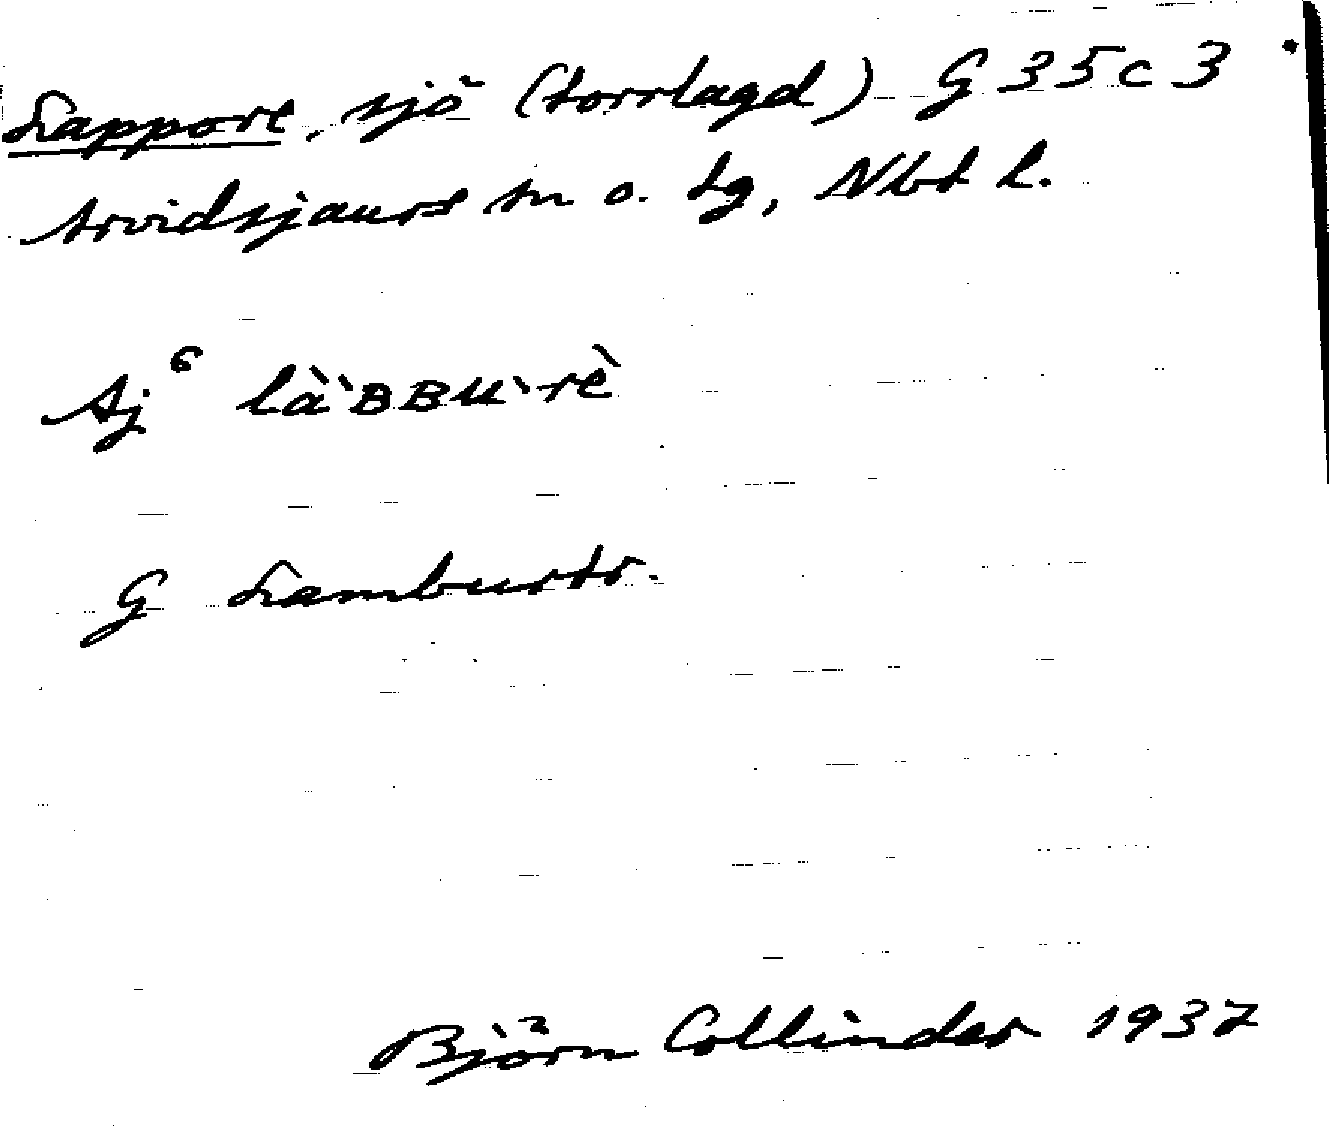 Lappore, sjö (torrlagd) G 35 c 3
Arvidsjaurs sn o. tg, Nbt l.
Aj⁶ là`BBU`rè
G Lamburtr.
Björn Collinder 1937